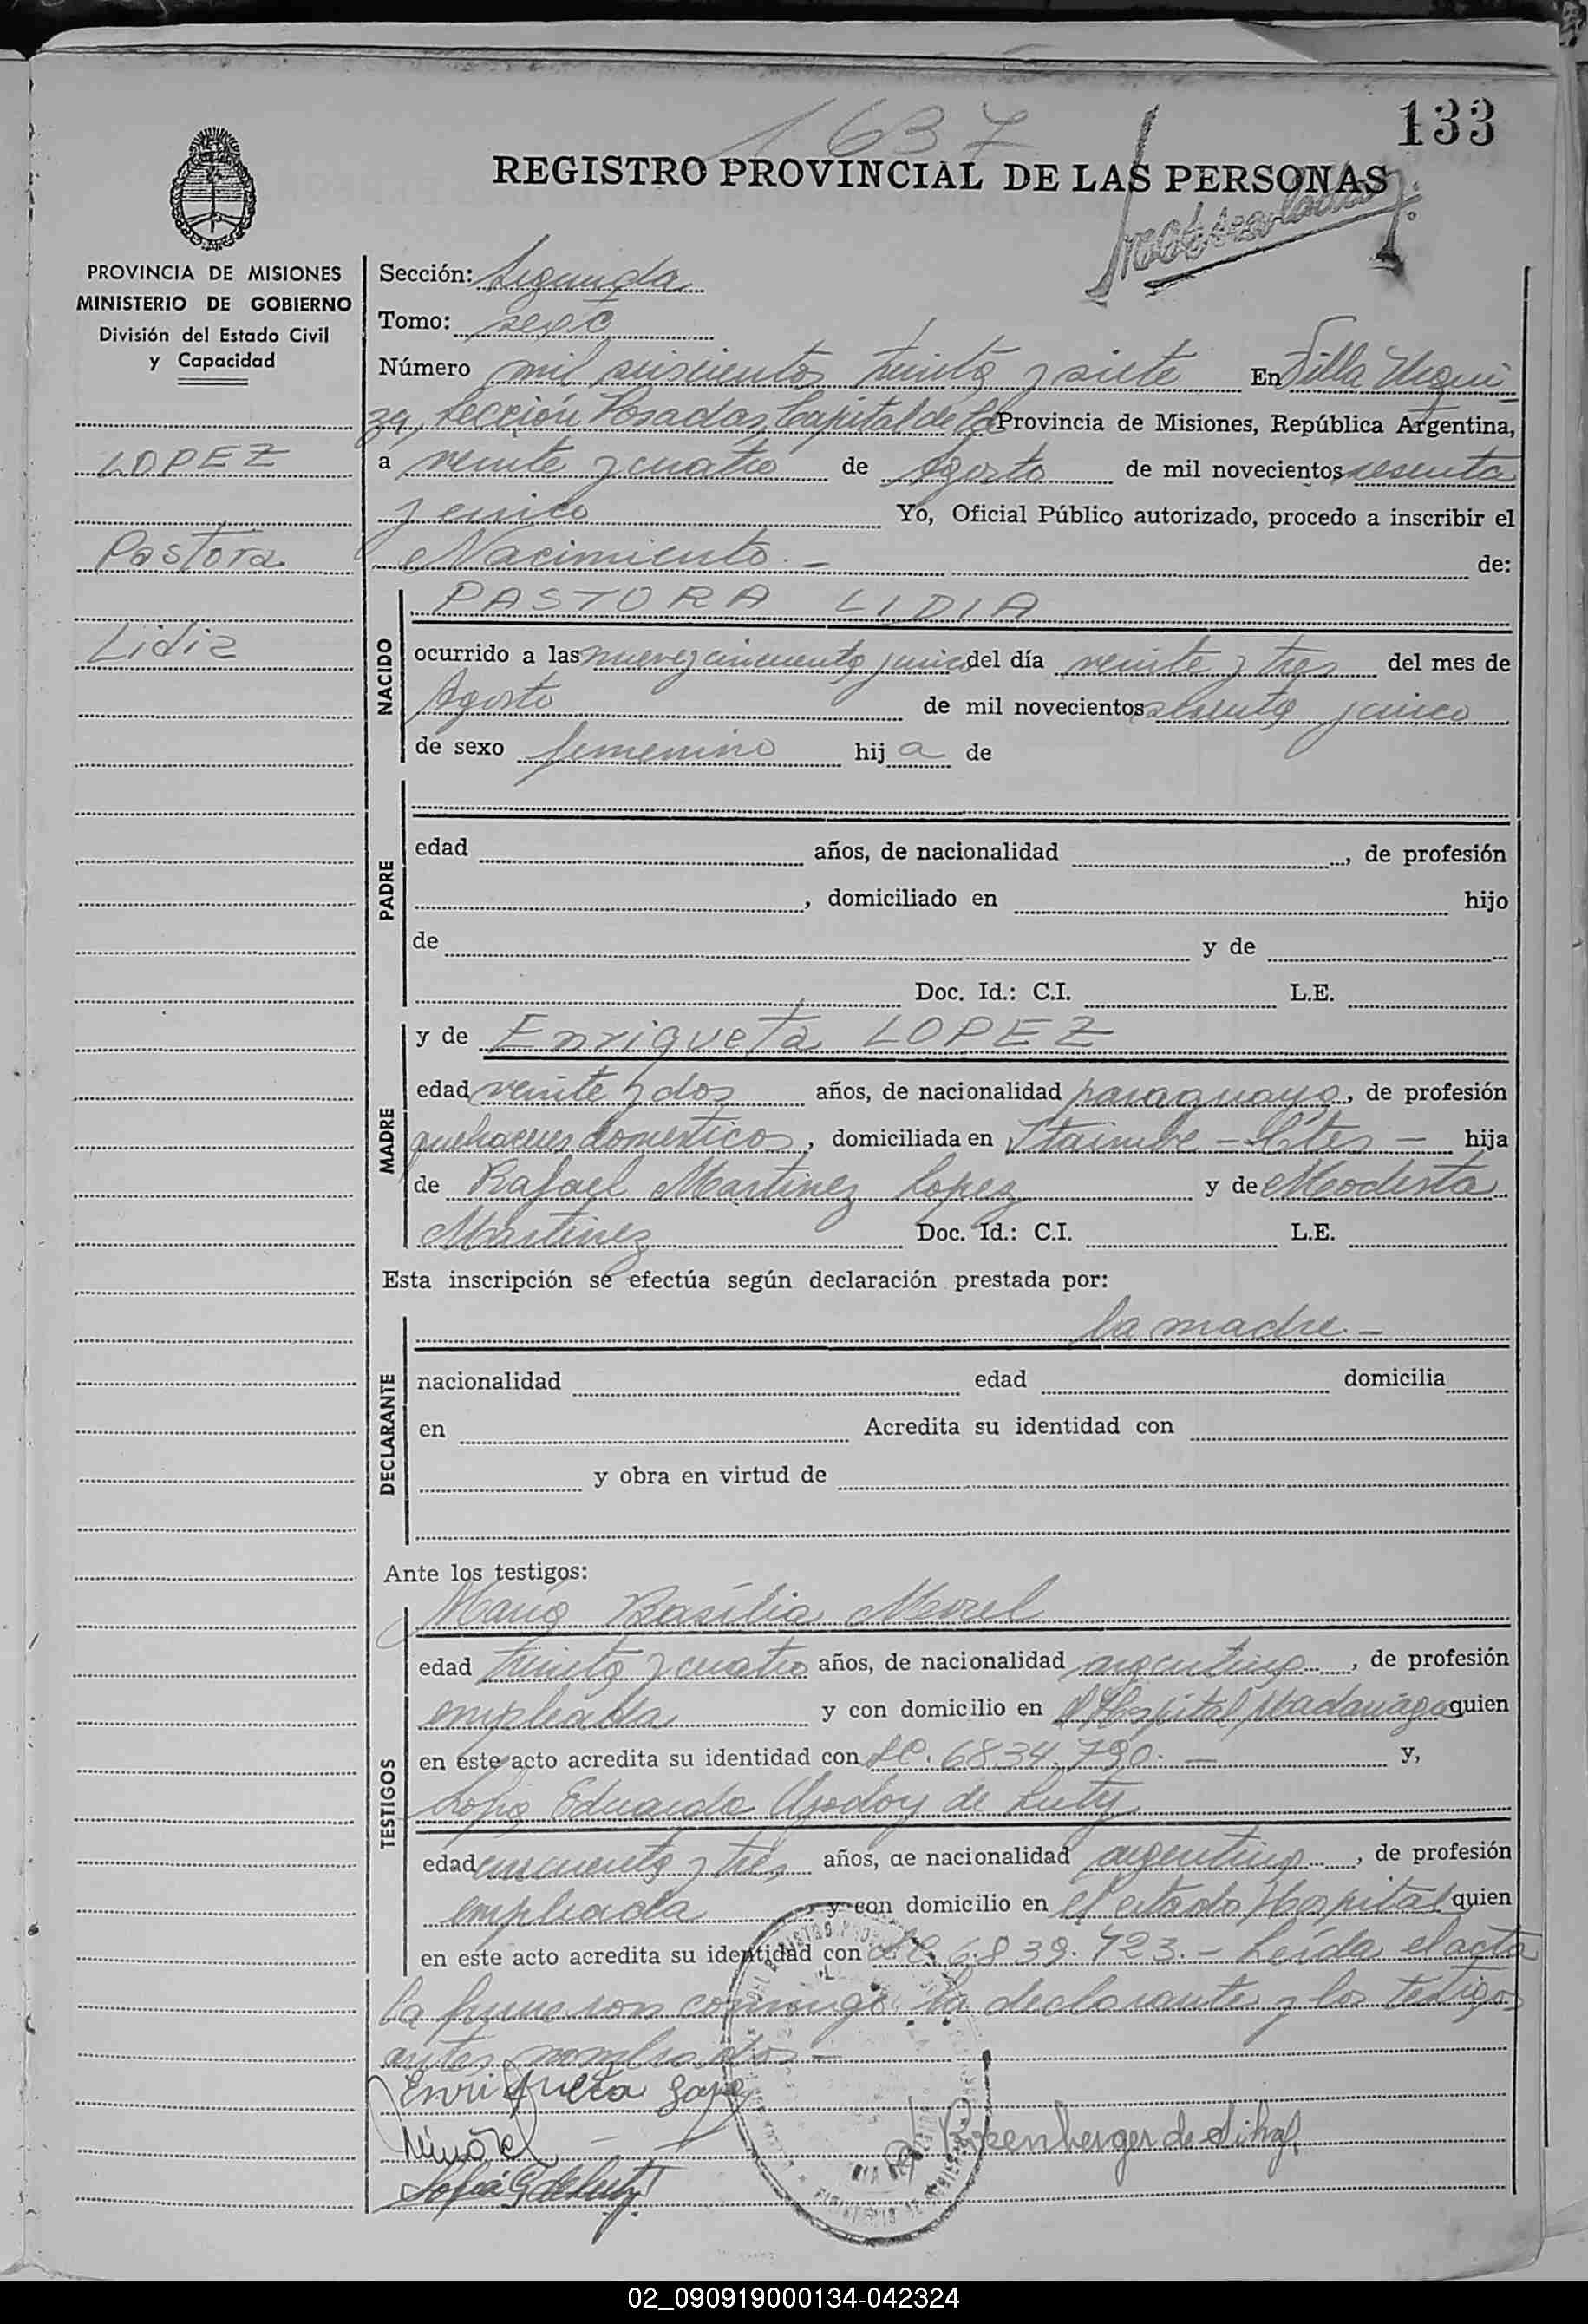 1637
133
REGISTRO PROVINCIAL DE LAS PERSONAS
PROVINCIA DE MISIONES
MINISTERIO DE GOBIERNO
División del Estado Civil
y Capacidad
LOPEZ
Pastora
Lidia
Sección: Segunda
Tomo:
Número mil seiscientos treinta y siete En Villa Urqui
za, Sección Posadas, Capital de la Provincia de Misiones, República Argentina,
a veinte y cuatro de Agosto de mil novecientos sesenta
y cinco Yo, Oficial Público autorizado, procedo a inscribir el
Nacimiento.- de:
NACIDO
PASTORA LIDIA
ocurrido a las nueve y cincuenta y cinco del día veinte y tres del mes de
Agosto de mil novecientos sesenta y cinco
de sexo femenino hija de
PADRE
edad años, de nacionalidad , de profesión
, domiciliado en hijo
de y de
Doc. Id.: C.I. L.E.
MADRE
y de Enriqueta LOPEZ
edad veinte y dos años, de nacionalidad paraguaya, de profesión
quehaceres domesticos, domiciliada en Itaimbe - - hija
de Rafael Martinez Lopez y de Modesta
Martinez Doc. Id.: C.I. L.E.
Esta inscripción se efectúa según declaración prestada por:
DECLARANTE
la madre.-
nacionalidad edad domicilia
en Acredita su identidad con
y obra en virtud de
Ante los testigos:
TESTIGOS
María Basilia Morel
edad treinta y cuatro años, de nacionalidad argentina, de profesión
empleada y con domicilio en el Hospital Madariaga quien
en este acto acredita su identidad con LC. 6834.790.- y,
Sofia Eduarda Godoy de Luty
edad cincuenta y tres años, de nacionalidad argentina, de profesión
empleada y con domicilio en el citado Hospital quien
en este acto acredita su identidad con LC 6.839.723.- Leída el acta
la firman conmigo la declarante y los testigos
antes nombrados-
Enriqueta Lopez
Sofia G de Luty
02_090919000134-042324